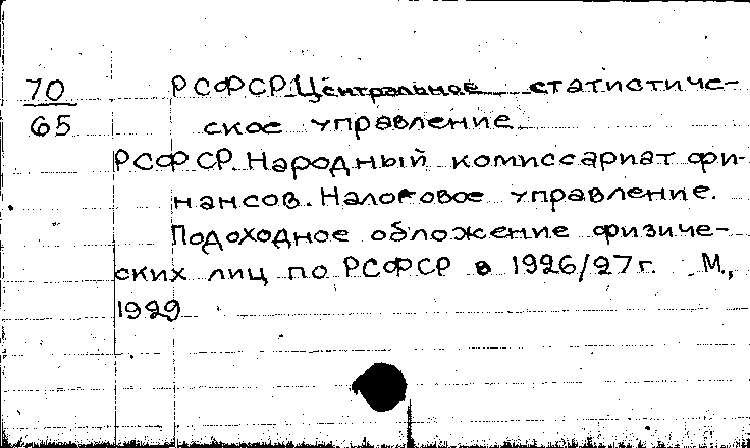 70 РСФСР. Центральное статистиче-
65 ское управление
РСФСР. Народный комиссариат фи-
нансов. Налоговое управление.
Подоходное обложение физиче-
ских лиц по РСФСР в 1926/27 г. М.,
1929